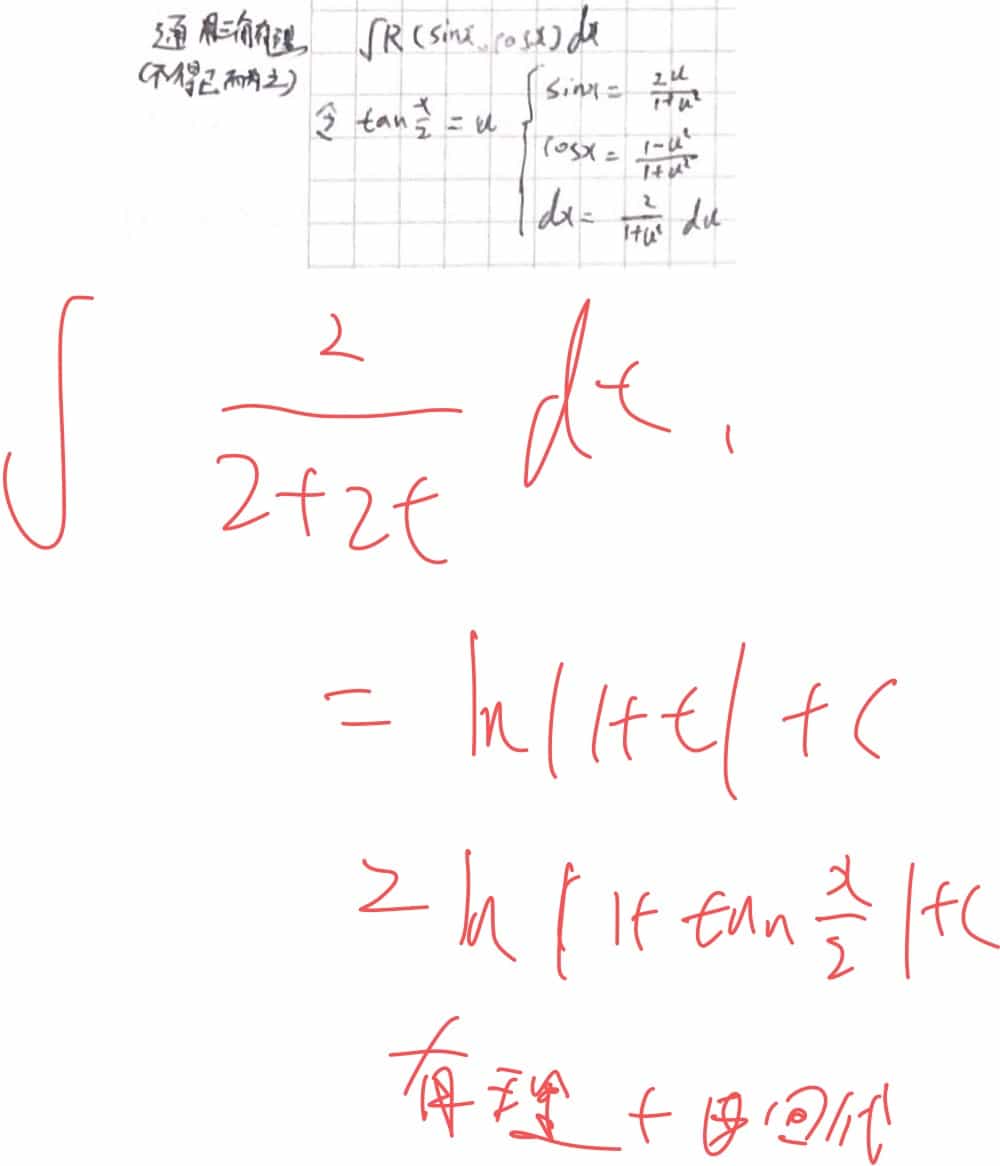 通用三角有理 ∫R(sinx,cosx)dx
(不得已而为之)
令 tan x/2 = u { sinx = 2u/(1+u²)
cosx = (1-u²)/(1+u²)
dx = 2/(1+u²) du
∫ 2/(2+2t) dt,
= ln|1+t| + C
= ln|1+tan x/2|+C
有理 + 回代